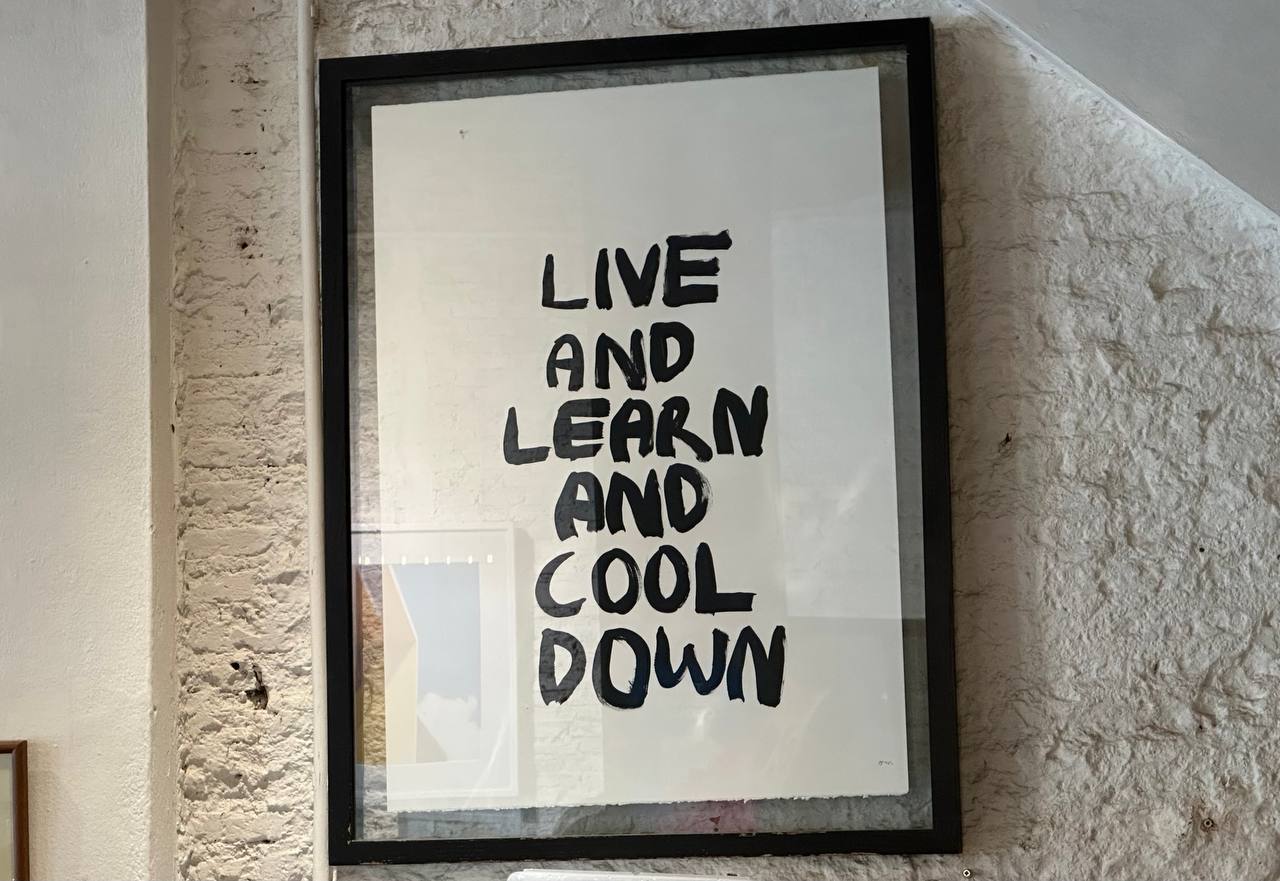 LIVE
AND
LEARN
AND
COOL
DOWN